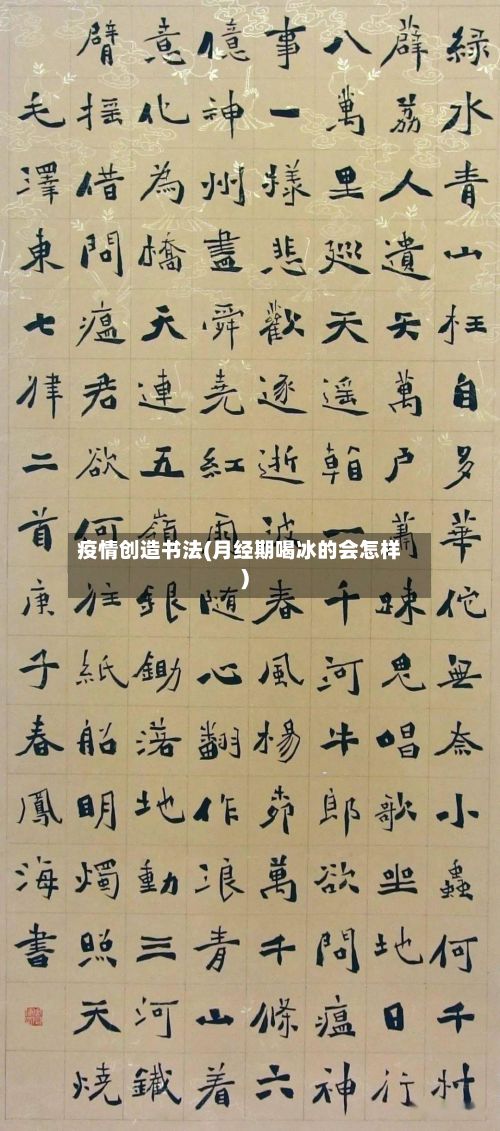 疫情创造书法(月经期喝冰的会怎样
)
綠水青山枉自多華佗無奈小蟲何千村
薜荔人遺矢萬户蕭疎鬼唱歌坐地日行
八萬里巡天遥看一千河牛郎欲問瘟神
事一樣悲歡逐逝波春風楊柳萬千條六
億神州盡舜堯紅雨随心翻作浪青山着
意化為橋天連五嶺銀鋤落地動三河鐵
臂摇借問瘟君欲何往紙船明燭照天燒
毛澤東七律二首庚子春鳳海書